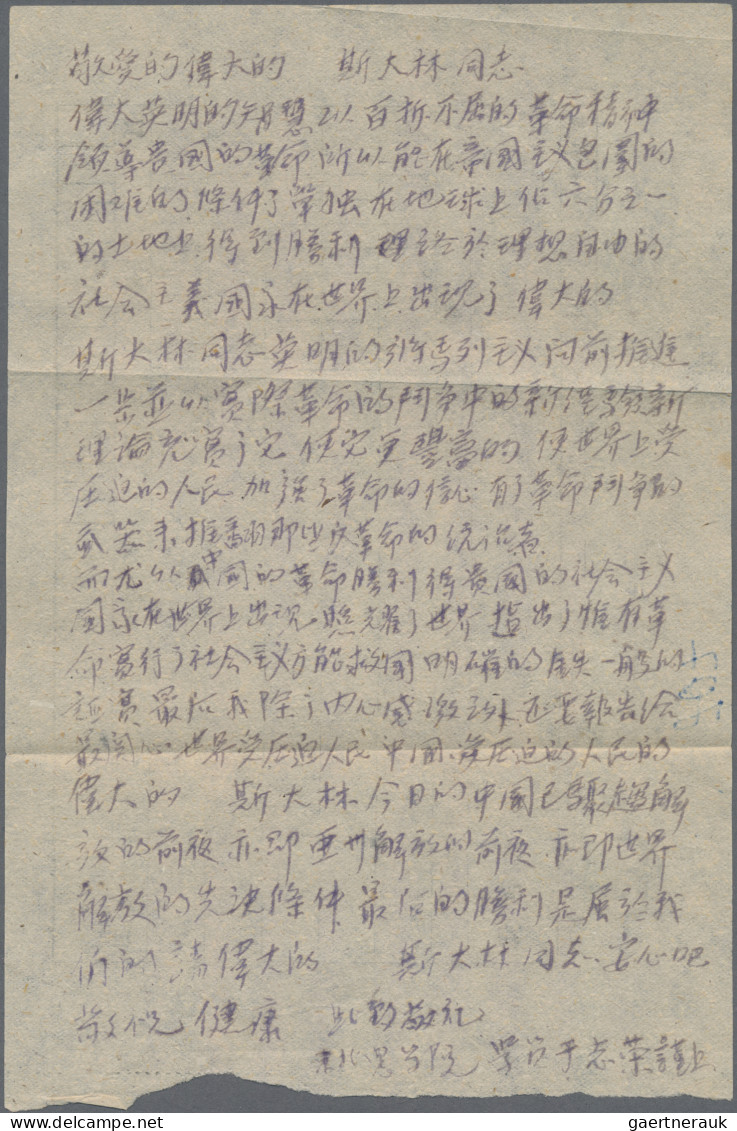 敬愛的偉大的 斯大林同志
偉大英明的智慧以百折不屈的革命精神
領導貴國的革命所以能在帝國主义包圍的
困难的條件下單独在地球上佔六分之一
的土地上得到勝利 理想自由的
社会主義國家在世界上出現了偉大的
斯大林同志英明的將馬列主义向前推進
一步並以實際革命的鬥争中的新經驗新
理論充實了它使它更豐富的使世界上受
压迫的人民加强了革命的信心有了革命鬥争的
武器来推翻那些反革命的统治者
而尤以中國的革命勝利得貴國的社会主义
國家在世界上出現照耀了世界指出了惟有革
命實行了社会主义方能救國明確的鉄一般的
証實最后我除了内心感激外还要報告给
最関心世界受压迫人民中國受压迫的人民的
偉大的 斯大林今日的中國已 解
放的前夜亦即亜州解放的前夜亦即世界
解放的先決條件最后的勝利是屬於我
們的請偉大的 斯大林同志安心吧
敬祝健康 此致敬礼
学院 学员于志荣謹上
gaertnerauk